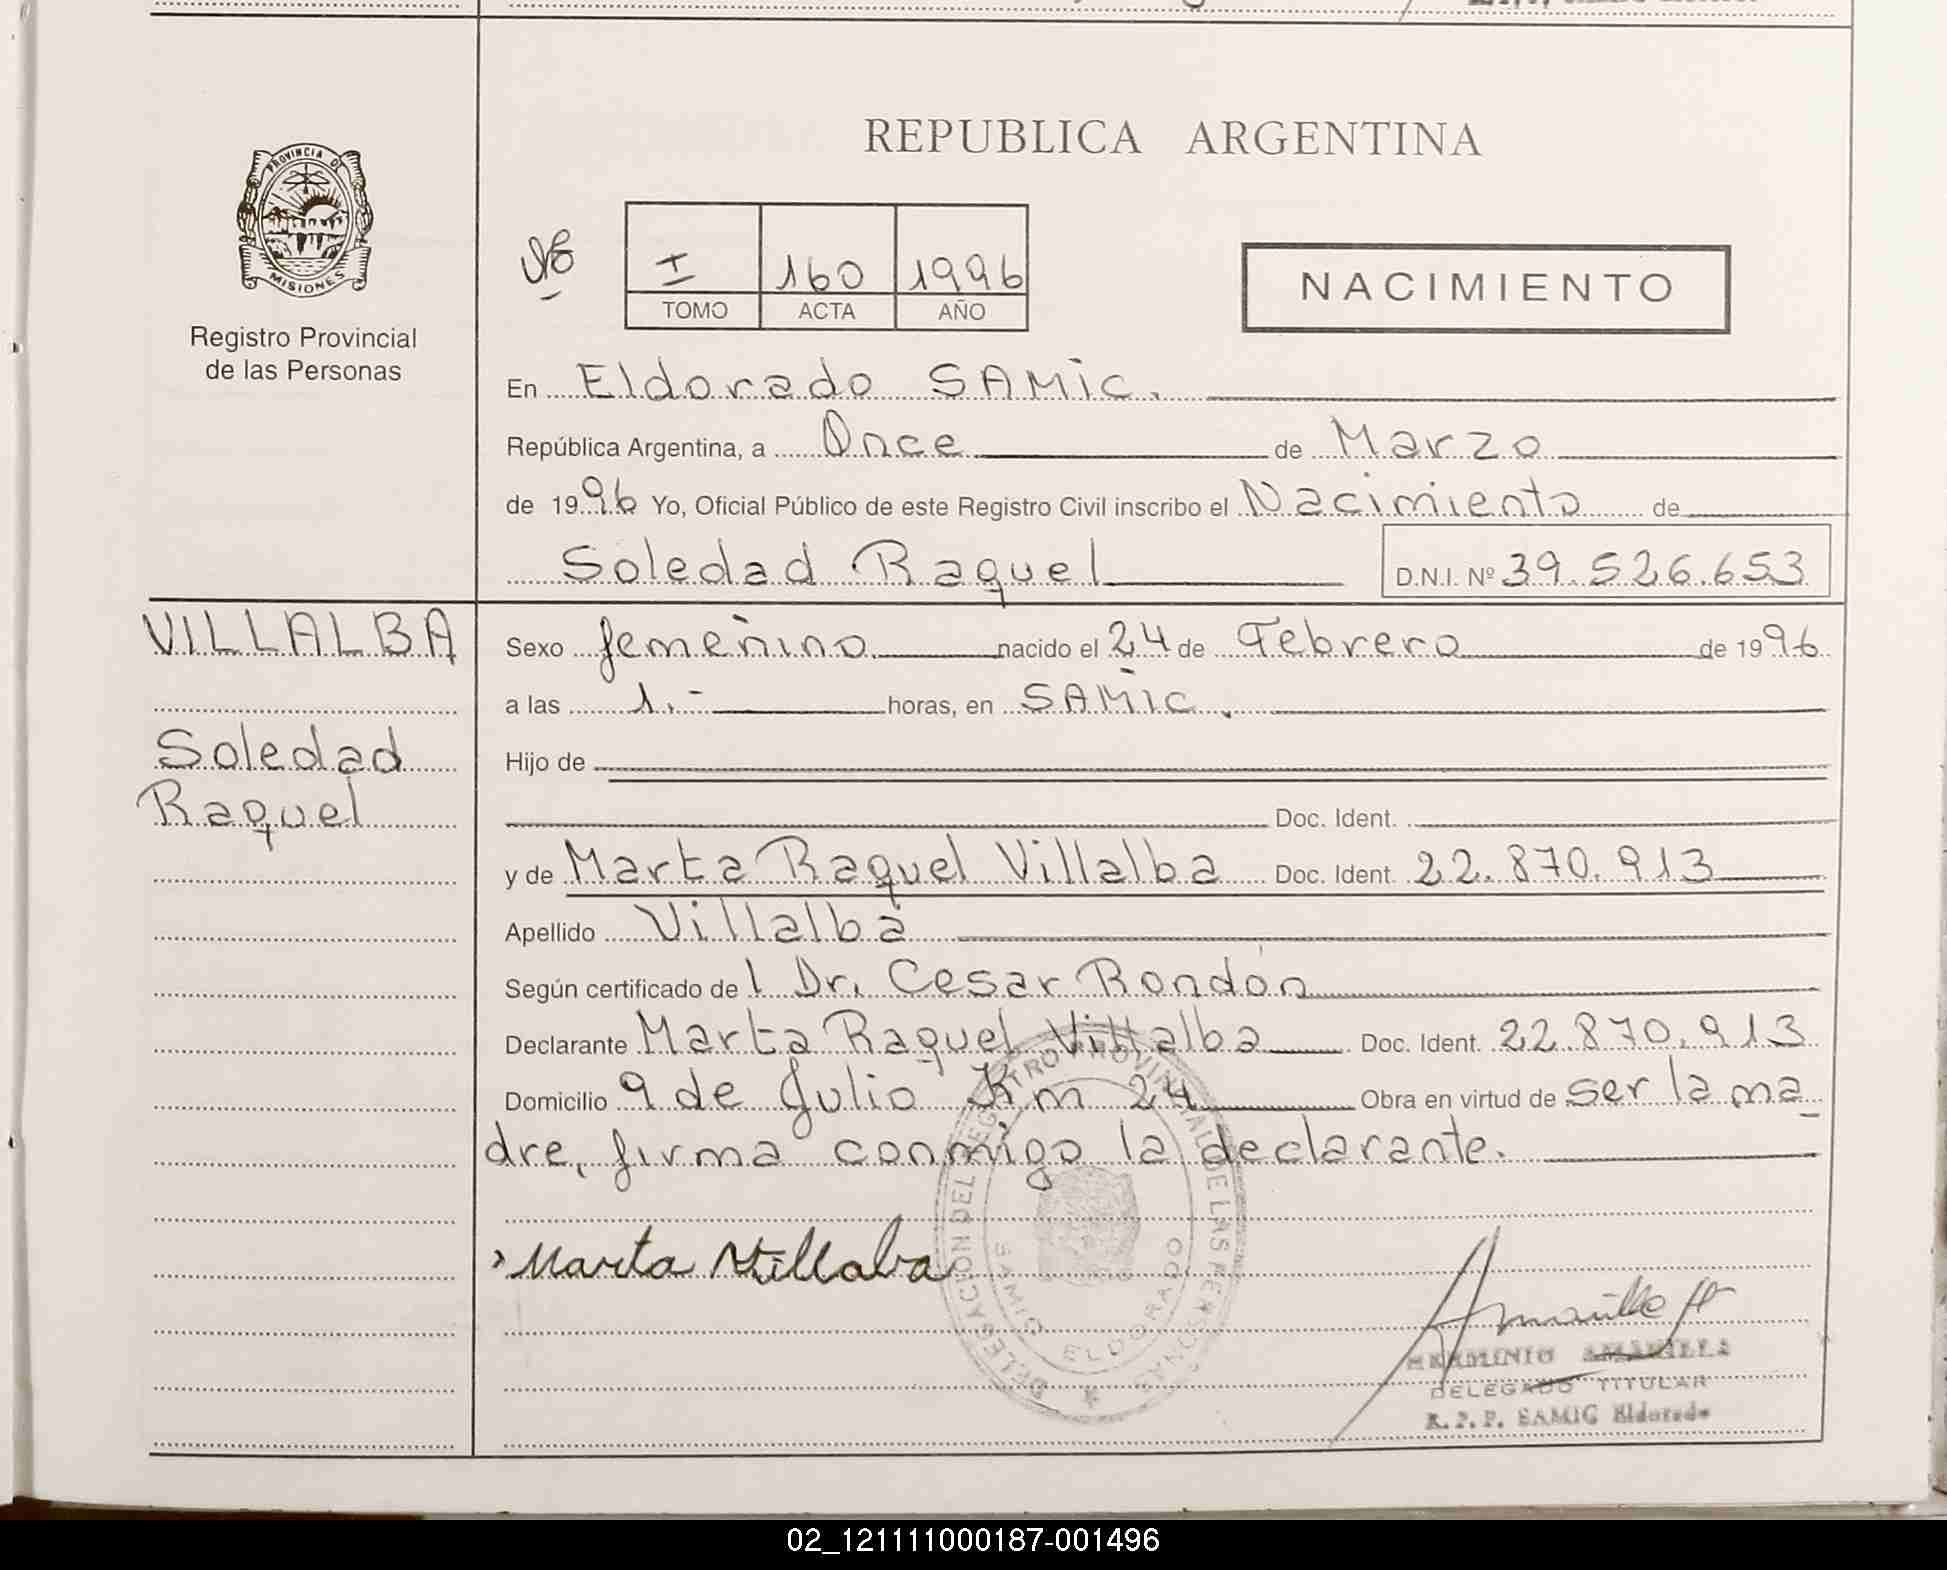 PROVINCIA DE
MISIONES
Registro Provincial
de las Personas
REPUBLICA ARGENTINA
I 160 1996
TOMO ACTA AÑO
NACIMIENTO
En Eldorado SAMIC.
República Argentina, a Once de Marzo
de 1996 Yo, Oficial Público de este Registro Civil inscribo el Nacimiento de
Soledad Raquel D.N.I. Nº 39.526.653
VILLALBA
Soledad
Raquel
Sexo femenino nacido el 24 de Febrero de 1996
a las 1.- horas, en SAMIC.
Hijo de
Doc. Ident.
y de Marta Raquel Villalba Doc. Ident. 22.870.913
Apellido Villalba
Según certificado de l Dr. Cesar Rondón
Declarante Marta Raquel Villalba Doc. Ident. 22.870.913
Domicilio 9 de Julio Km 24 Obra en virtud de ser la ma
dre, firma conmigo la declarante.
Marta Villalba
DELEGACION DEL REGISTRO PROVINCIAL DE LAS PERSONAS
SAMIC ELDORADO
HERMINIO AMARILLA
DELEGADO TITULAR
R.P.P. SAMIC Eldorado
02_121111000187-001496